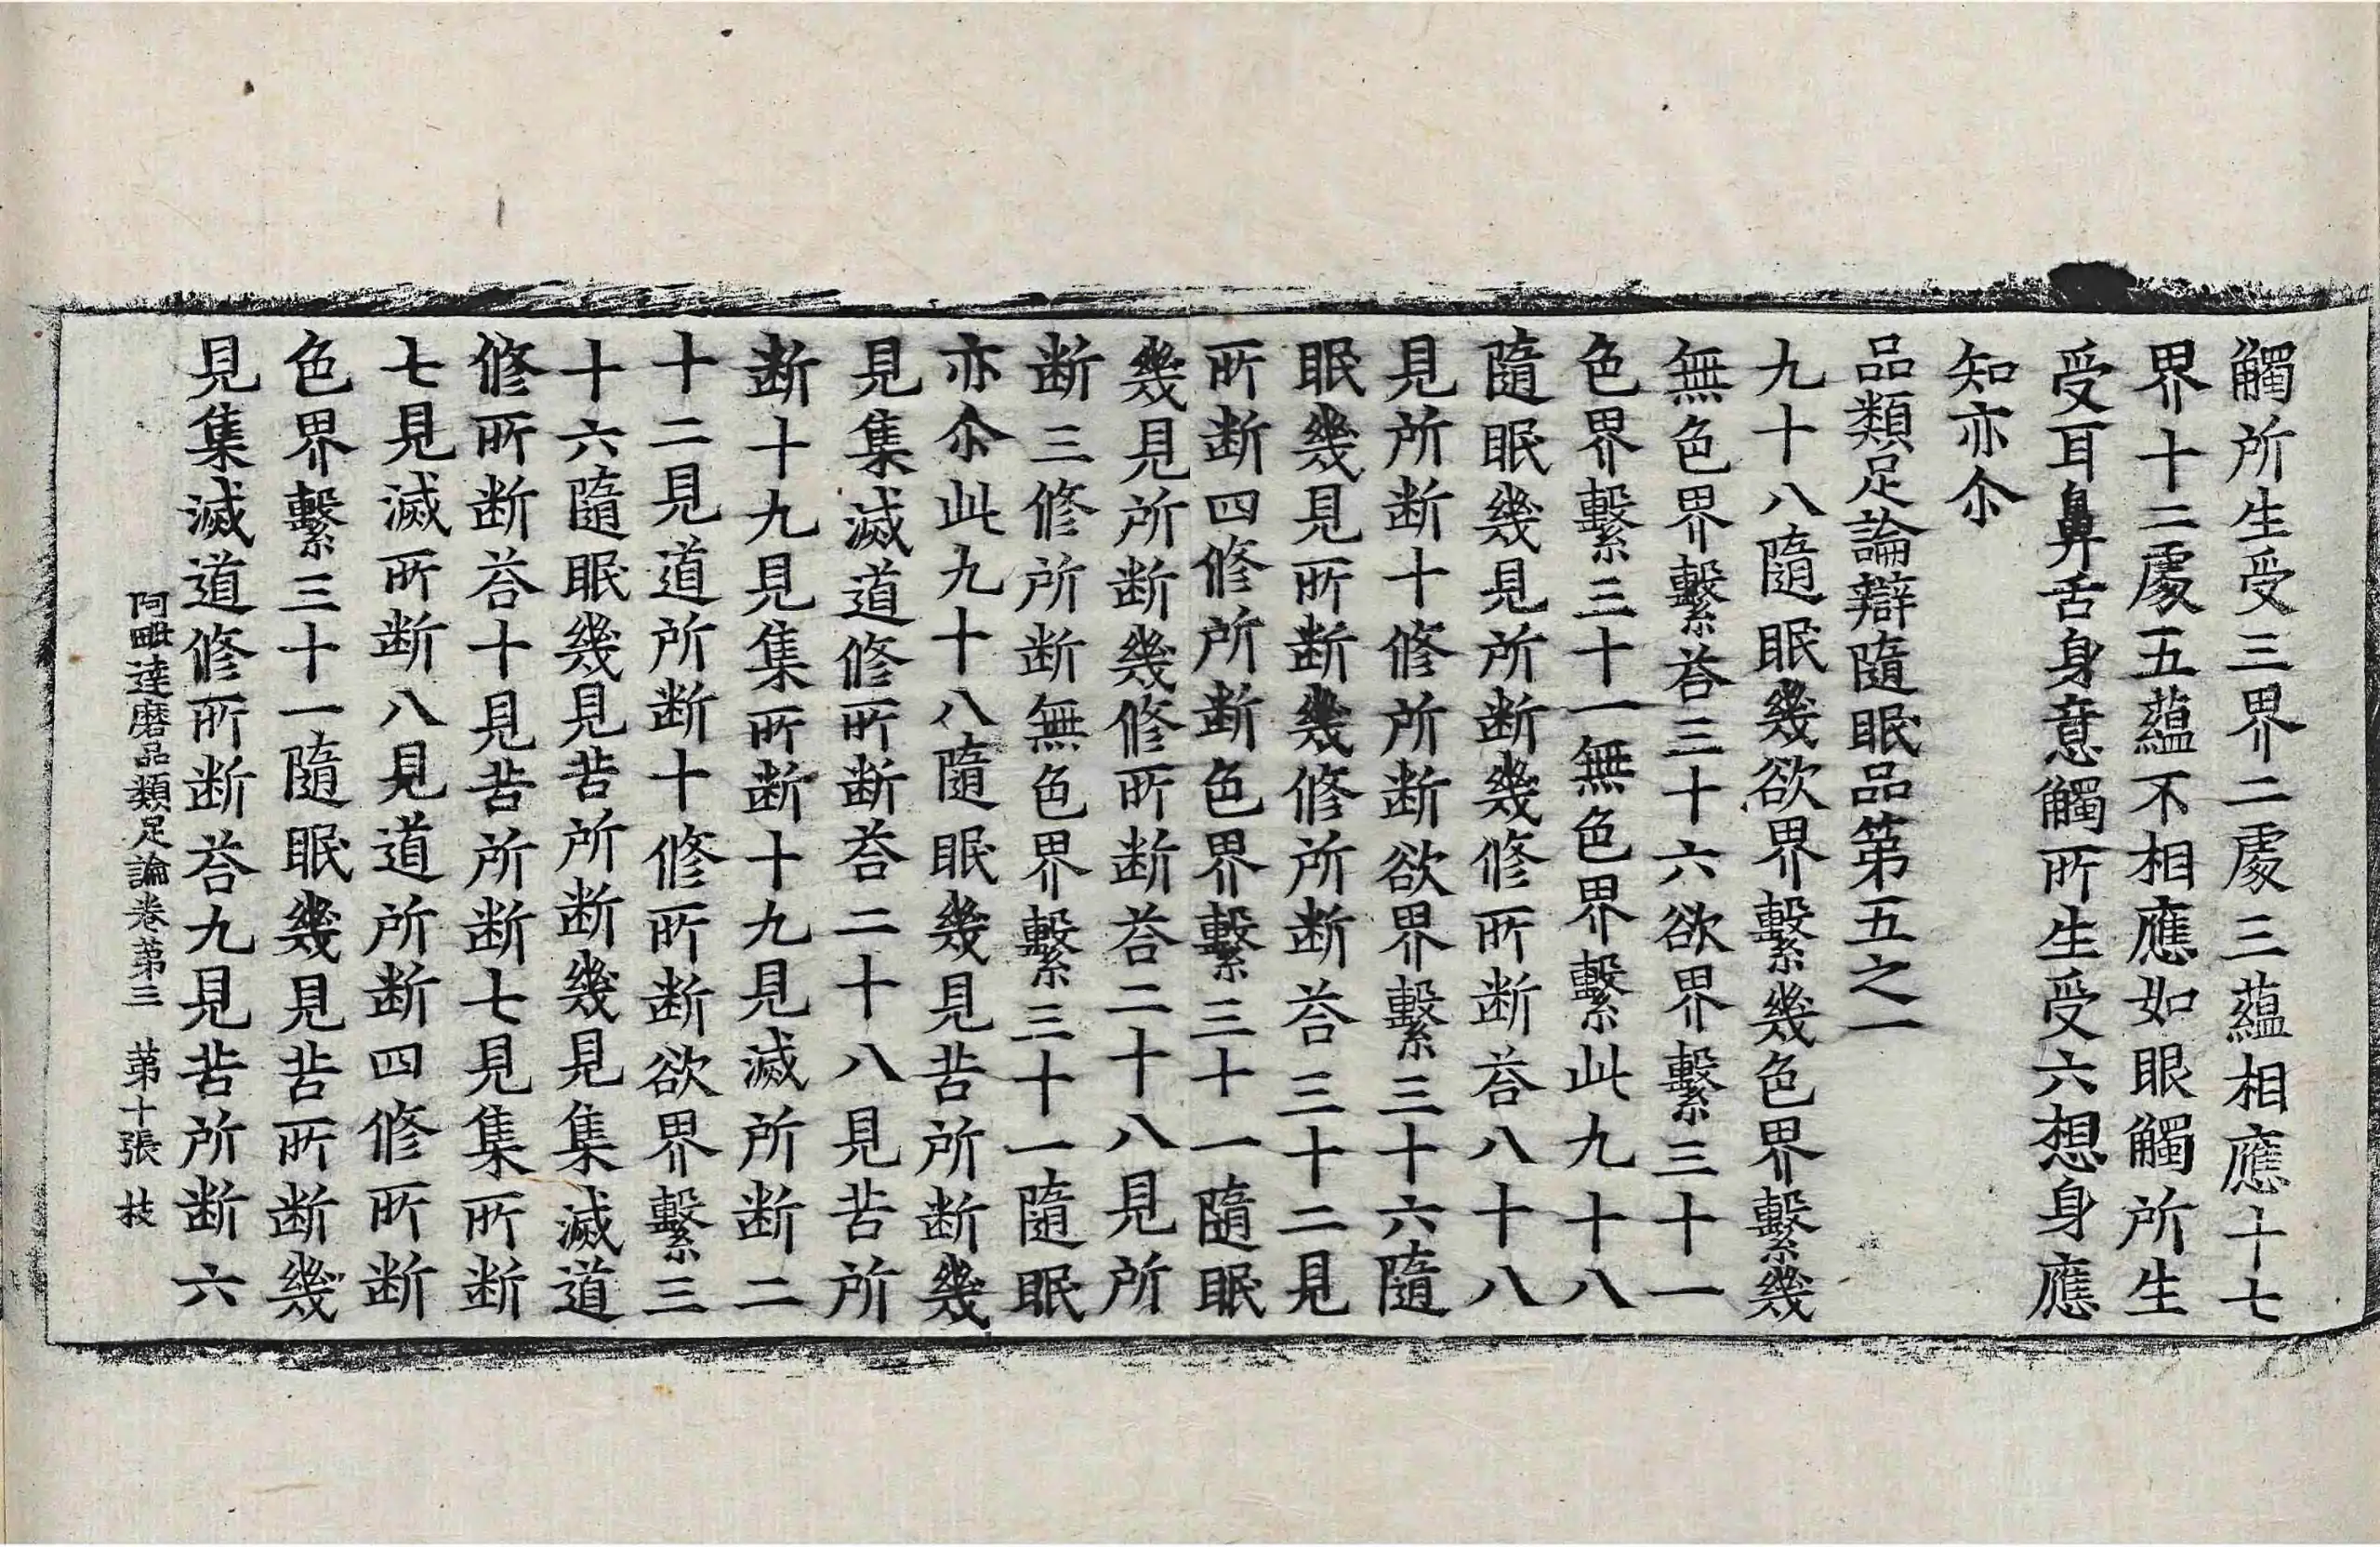 觸所生受三界二處三蘊相應十七
界十二處五蘊不相應如眼觸所生
受耳鼻舌身意觸所生受六想身應
知亦尒
品類足論辯隨眠品第五之一
九十八隨眠幾欲界繫幾色界繫幾
無色界繫荅三十六欲界繫三十一
色界繫三十一無色界繫此九十八
隨眠幾見所断幾修所断荅八十八
見所断十修所断欲界繫三十六隨
眠幾見所断幾修所断荅三十二見
所断四修所断色界繫三十一隨眠
幾見所断幾修所断荅二十八見所
断三修所断無色界繫三十一隨眠
亦尒此九十八隨眠幾見苦所断幾
見集滅道修所断荅二十八見苦所
断十九見集所断十九見滅所断二
十二見道所断十修所断欲界繫三
十六隨眠幾見苦所断幾見集滅道
修所断荅十見苦所断七見集所断
七見滅所断八見道所断四修所断
色界繫三十一隨眠幾見苦所断幾
見集滅道修所断荅九見苦所断六
阿毗達磨品類足論卷第三 第十張 技